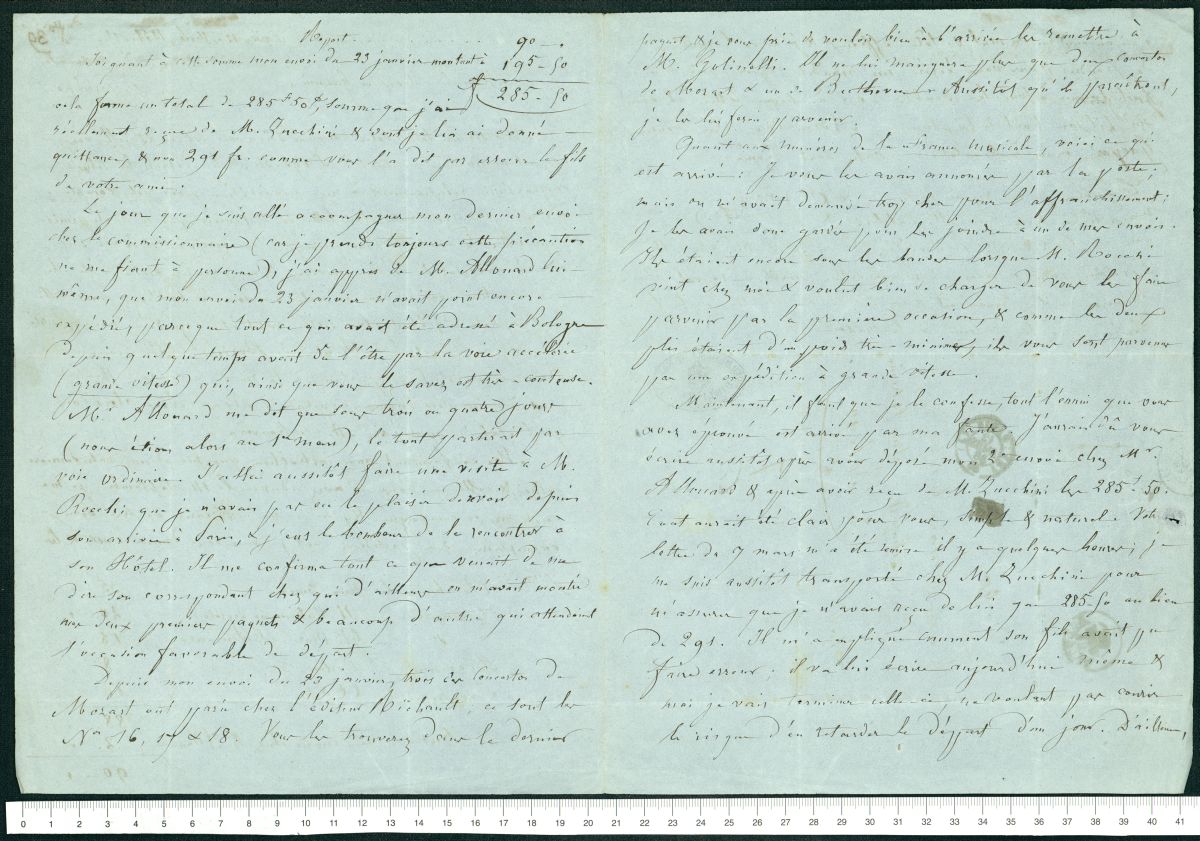 Report 90 - .
Joignant à cette somme mon envoi du 23 janvier montant à 195 - 50
285 - 50
cela forme un total de 285f 50c, somme que j'ai
réellement reçue de M. Zucchini & dont je lui ai donné
quittance, & non 291 fr. comme vous l'a dit par erreur le fils
de votre ami.
Le jour que je suis allé accompagner mon dernier envoi
chez le commissionnaire (car je prends toujours cette précaution
ne me fiant à personne), j'ai appris de M. Allouard lui-
même, que mon envoi du 23 janvier n'avait point encore
expédié, parceque tout ce qui avait été adressé à Bologne
depuis quelque temps avait dû l'être par la voie accélérée
(grande vitesse) qui, ainsi que vous le savez est très-couteuse.
Mr Allouard me dit que sous trois ou quatre jours
(nous étions alors au 1er mars), le tout partirait par
voie ordinaire. J'allai aussitôt faire une visite à M.
Rocchi que je n'avais pas eu le plaisir de voir depuis
son arrivée à Paris, & j'eus le bonheur de le rencontrer à
son Hôtel. Il me confirma tout ce que venait de me
dire son correspondant chez qui d'ailleurs on m'avait montré
mes deux premiers paquets & beaucoup d'autres qui attendaient
l'occasion favorable de départ.
Depuis mon envoi du 23 janvier, trois des Concertos de
Mozart ont paru chez l'éditeur Richault; ce sont les
Nos 16, 17 & 18. Vous les trouverez dans le dernier
paquet & je vous prie de vouloir bien à l'arrivée les remettre à
M. Golinelli. Il ne lui manquera plus que deux concertos
de Mozart & un de Beethoven. Aussitôt qu'ils paraîtront,
je les lui ferai parvenir.
Quant aux numéros de la France Musicale, voici ce qui
est arrivé: Je vous les avais annoncés par la poste,
mais on m'avait demandé trop cher pour l'affranchissement;
Je les avais donc gardés pour les joindre à un de mes envois.
Ils étaient encore sous les bandes lorsque M. Rocchi
vint chez moi & voulut bien se charger de vous les faire
parvenir par la première occasion, & comme les deux
plis étaient d'un poids très-minime, ils vous sont parvenus
par une expédition à grande vitesse.
Maintenant, il faut que je le confesse, tout l'ennui que vous
avez éprouvé est arrivé par ma faute. J'aurais dû vous
écrire aussitôt après avoir déposé mon 2e envoi chez Mr
Allouard & après avoir reçu de M. Zucchini les 285f. 50.
Tout aurait été clair pour vous, simple & naturel. Votre
lettre du 7 mars m'a été remise il y a quelques heures; je
me suis aussitôt transporté chez M. Zucchini pour
m'assurer que je n'avais reçu de lui que 285-50 au lieu
de 291. Il m'a expliqué comment son fils avait pu
faire erreur; il va lui écrire aujourd'hui même &
moi je vais terminer celle-ci, ne voulant pas courir
le risque d'en retarder le départ d'un jour. D'ailleurs,